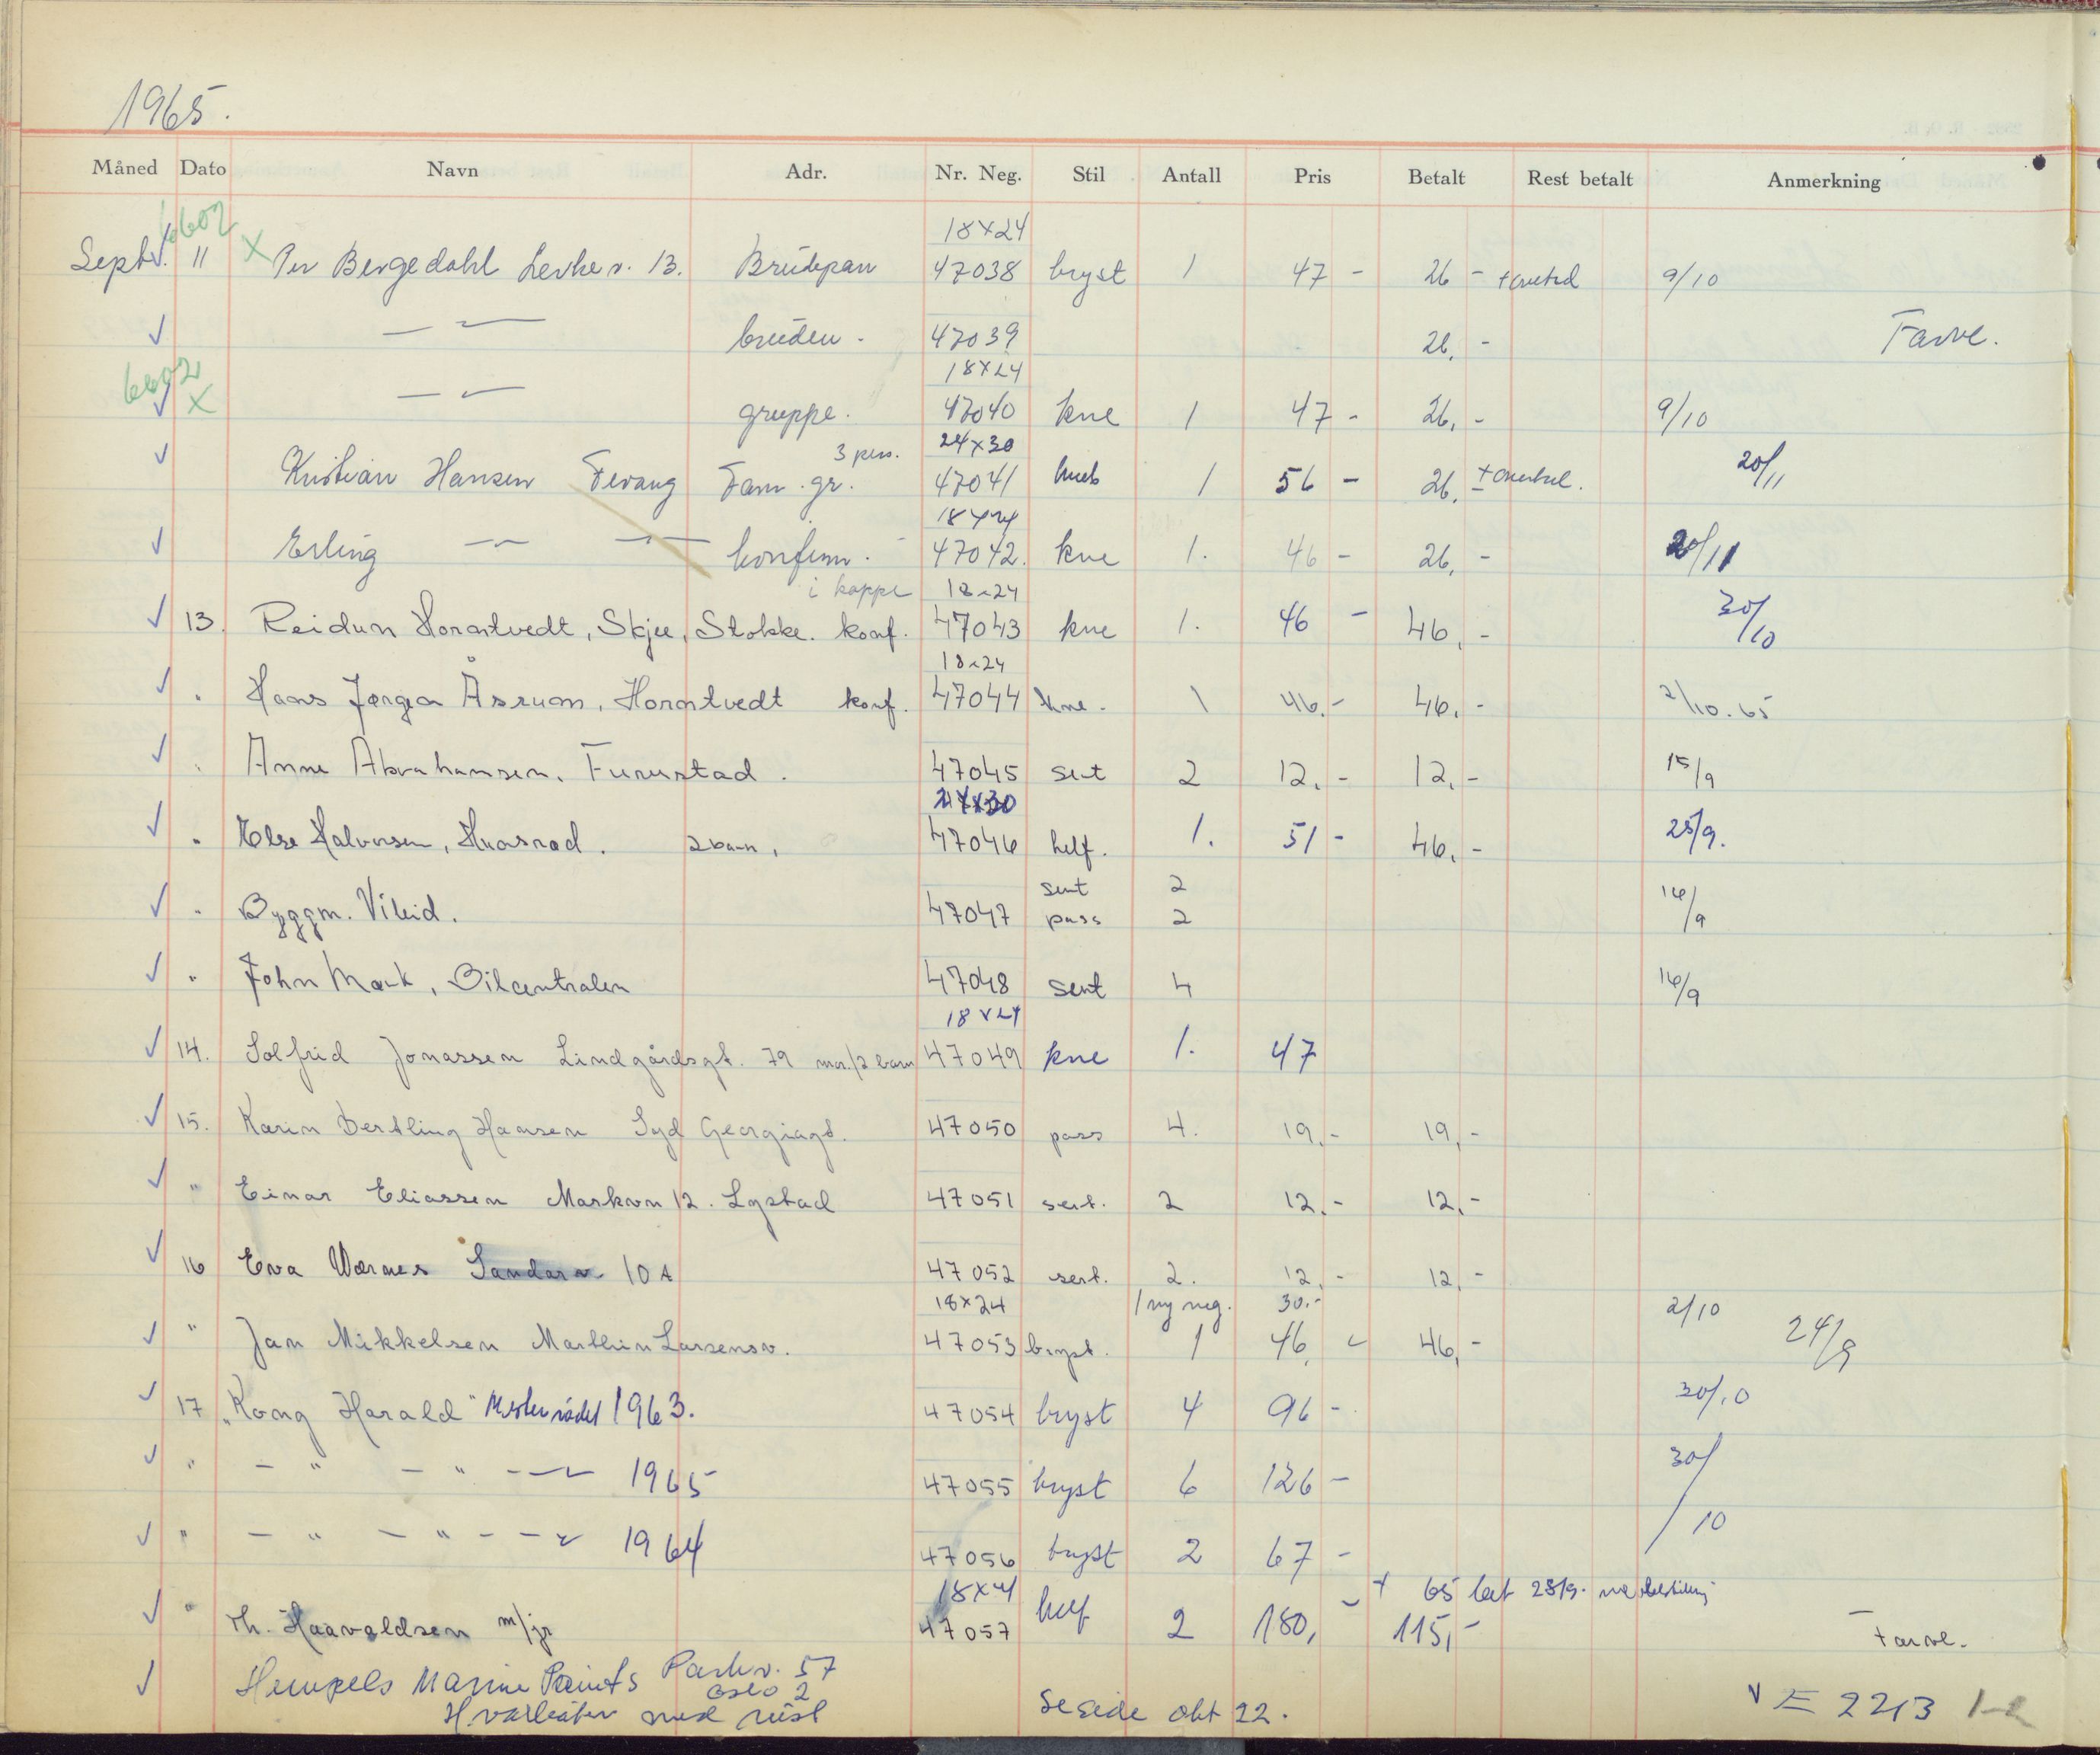 1965.
Måned Dato Navn Adr. Nr. Neg. Stil Antall Pris Betalt Rest betalt Anmerkning
6602 18x24
Sept. 11 x Per Bergedahl 13. Brudepar 47038 bryst 1 47 - 26 - 9/10
— — bruden. 47039 26, - Farve.
6602 18x24
x — — gruppe. 47040 kne 1 47 - 26, - 9/10
3 pers. 24x30
Kristian Hansen Fevang Fam. gr. 47041 1 56 - 26, - 20/11
18x24
Erling — — konfirm. 47042. kne 1. 46 - 26, - 20/11
i kappe 18x24
13. Reidun Horntvedt, Skjee, Stokke. konf. 47043 kne 1. 46 - 46, - 30/10
18x24
" Hans Jørgen Åsrum, Horntvedt konf. 47044 kne. 1 46,- 46,- 2/10.65
" Anne Abrahamsen, Furustad. 47045 sert 2 12,- 12,- 15/9
24x30
" Else Halvorsen, Huasrød. 2 barn, 47046 helf. 1. 51 - 46,- 25/9.
sert 2
" Byggm. Virid. 47047 pass 2 16/9
" John Mark, Bilcentralen 47048 sert 4 16/9
18x24
14. Solfrid Jonassen Lindgårdsgt. 79 mor/2 barn 47049 kne 1. 47
15. Karin Bertling Hansen Syd Georgiagt. 47050 pass 4. 19,- 19,-
" Einar Eliassen Markvn 12. Lystad 47051 sert. 2 12,- 12,-
16 Eva Wærnes Sandar v. 10 A 47052 sert. 2. 12,- 12,-
18x24 1 ny neg. 30.- 2/10
" Jan Mikkelsen Marthin Larsensv. 47053 bryst. 1 46, - 46,- 24/9
17 "Kong Harald" Mesterrådet 1963. 47054 bryst 4 96 - 30/10
" — " — " — — 1965 47055 bryst 6 126 - 30/10
" — " — " — — 1964 47056 bryst 2 67 -
18x24 + 65 bet 28/9.
" Th. Haavaldsen m/jr 47057 helf 2 180, - 115,- Farve.
Hempels Marine Paints Parkv. 57
Oslo 2
med rust se side okt 22. E 2213 1-2